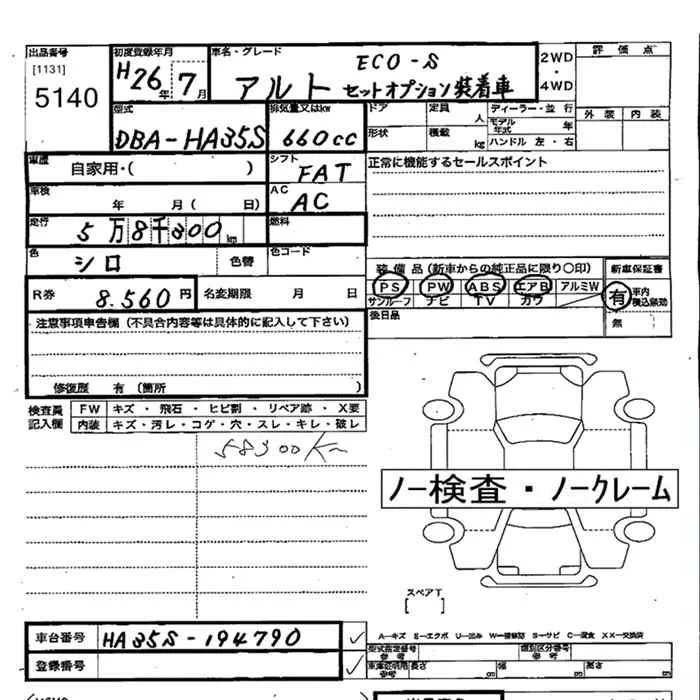 出品番号
[1131]
5140
初度登録年月
H26年7月
車名・グレード
ECO-S
アルト セットオプション装着車
2WD
・
4WD
評価点
外装 内装
型式
DBA-HA35S
排気量又はkw
660cc
ドア
定員
人
ディーラー・並行
モデル年式 年
形状
積載
kg
ハンドル 左・右
車歴
自家用・( )
シフト
FAT
正常に機能するセールスポイント
車検
年 月( 日)
AC
AC
走行
5万8千300km
燃料
色
シロ
色替
色コード
装備品(新車からの純正品に限り○印)
新車保証書
PS PW ABS エアB アルミW
サンルーフ ナビ TV カワ
有 車内積込無効
無
R券
8.560円
名変期限 月 日
後日品
注意事項申告欄(不具合内容等は具体的に記入して下さい)
修復歴 有(箇所 )
検査員記入欄
FW キズ・飛石・ヒビ割・リペア跡・X要
内装 キズ・汚レ・コゲ・穴・スレ・キレ・破レ
58300Km
ノー検査・ノークレーム
スペアT
[ ]
車台番号
HA35S-194790
登録番号
A-キズ E-エクボ U-凹み W-補修跡 S-サビ C-腐食 XX-交換済
型式指定番号 参考
類別区分番号 参考
車庫証明用 参考
長さ
幅
高さ